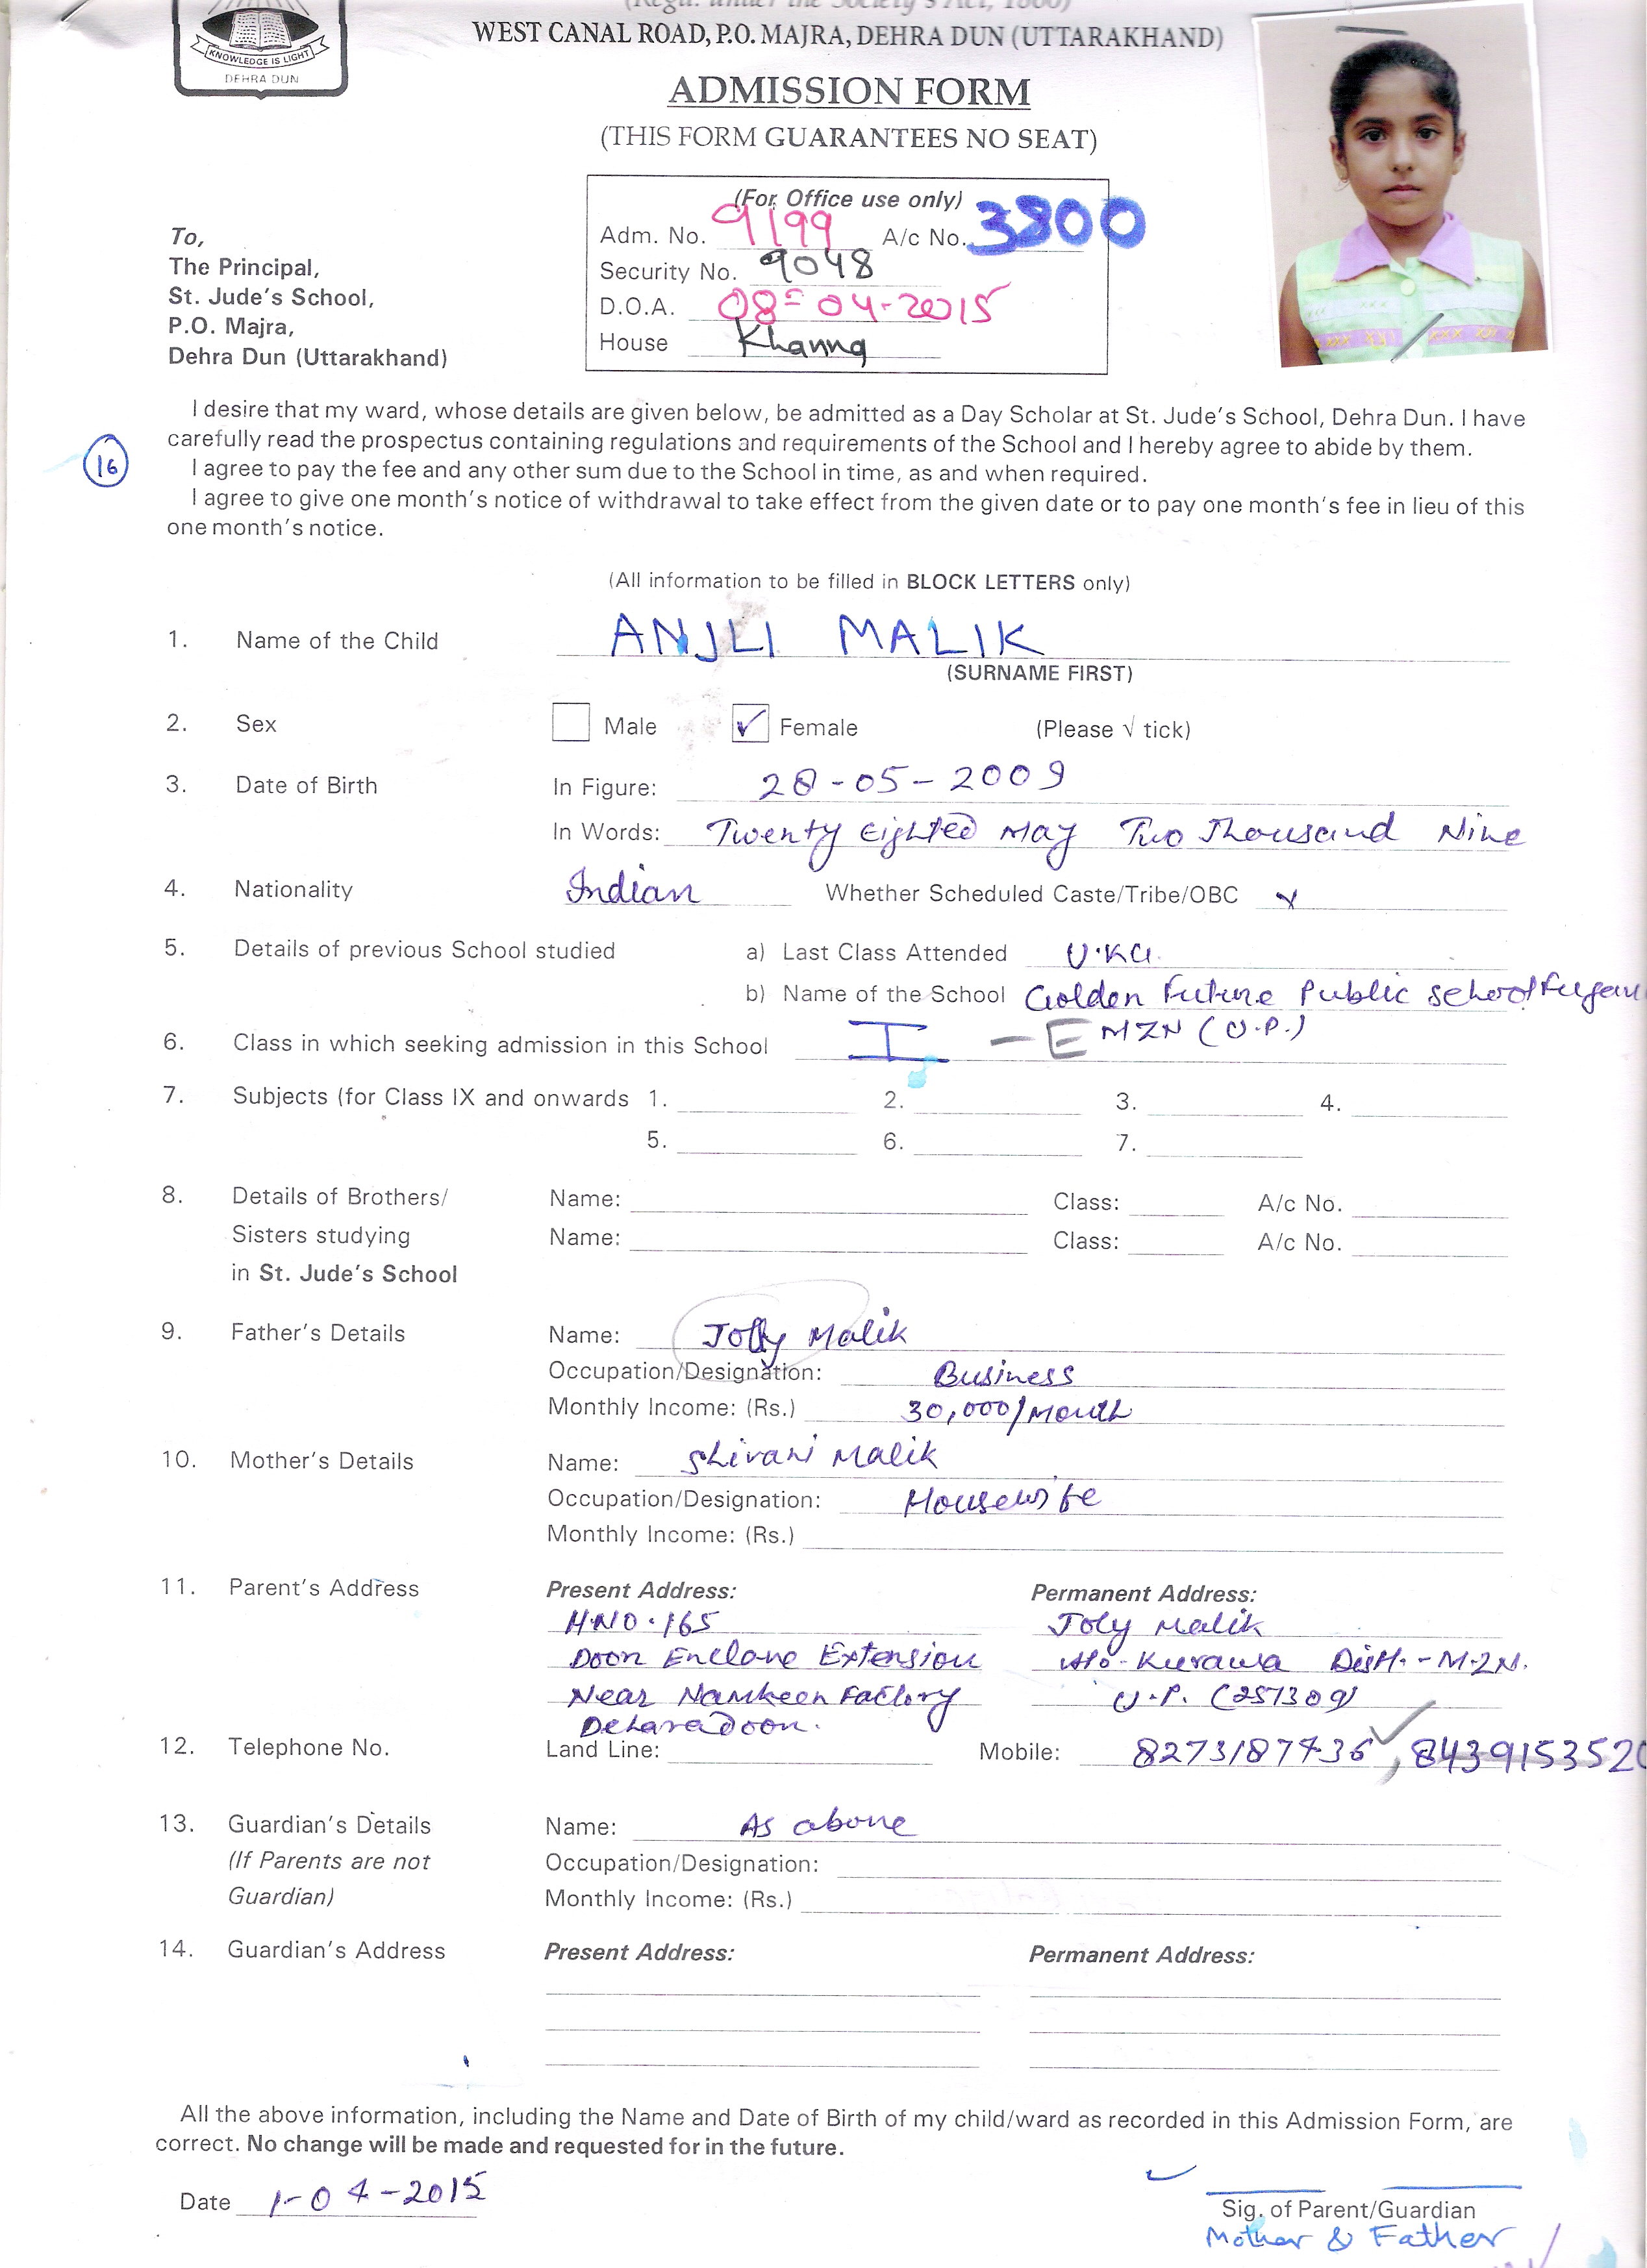 (Regd. under the Society's Act, 1860)
WEST CANAL ROAD, P.O. MAJRA, DEHRA DUN (UTTARAKHAND)
KNOWLEDGE IS LIGHT
DEHRA DUN
ADMISSION FORM
(THIS FORM GUARANTEES NO SEAT)
(For Office use only)
Adm. No. 9199 A/c No. 3800
Security No. 9048
D.O.A. 08-04-2015
House Khanna
To,
The Principal,
St. Jude's School,
P.O. Majra,
Dehra Dun (Uttarakhand)
I desire that my ward, whose details are given below, be admitted as a Day Scholar at St. Jude's School, Dehra Dun. I have
carefully read the prospectus containing regulations and requirements of the School and I hereby agree to abide by them.
16
I agree to pay the fee and any other sum due to the School in time, as and when required.
I agree to give one month's notice of withdrawal to take effect from the given date or to pay one month's fee in lieu of this
one month's notice.
(All information to be filled in BLOCK LETTERS only)
1. Name of the Child ANJLI MALIK
(SURNAME FIRST)
2. Sex Male ✓ Female (Please √ tick)
3. Date of Birth In Figure: 28-05-2009
In Words: Twenty Eighted May Two Thousand Nine
4. Nationality Indian Whether Scheduled Caste/Tribe/OBC x
5. Details of previous School studied a) Last Class Attended U.KG.
b) Name of the School Golden Future Public School
6. Class in which seeking admission in this School I - E MZN (U.P.)
7. Subjects (for Class IX and onwards 1. 2. 3. 4.
5. 6. 7.
8. Details of Brothers/ Name: Class: A/c No.
Sisters studying Name: Class: A/c No.
in St. Jude's School
9. Father's Details Name: Jolly Malik
Occupation/Designation: Business
Monthly Income: (Rs.) 30,000/Month
10. Mother's Details Name: Shivani Malik
Occupation/Designation: Housewife
Monthly Income: (Rs.)
11. Parent's Address Present Address: Permanent Address:
H.NO.165 Joly Malik
Doon Enclave Extension Kurawa Distt.-MZN.
Near Namkeen Factory U.P. (251309)
Deharadoon.
12. Telephone No. Land Line: Mobile: 8273187436, 8439153520
13. Guardian's Details Name: As above
(If Parents are not Occupation/Designation:
Guardian) Monthly Income: (Rs.)
14. Guardian's Address Present Address: Permanent Address:
All the above information, including the Name and Date of Birth of my child/ward as recorded in this Admission Form, are
correct. No change will be made and requested for in the future.
Date 1-04-2015
Sig. of Parent/Guardian
Mother & Father